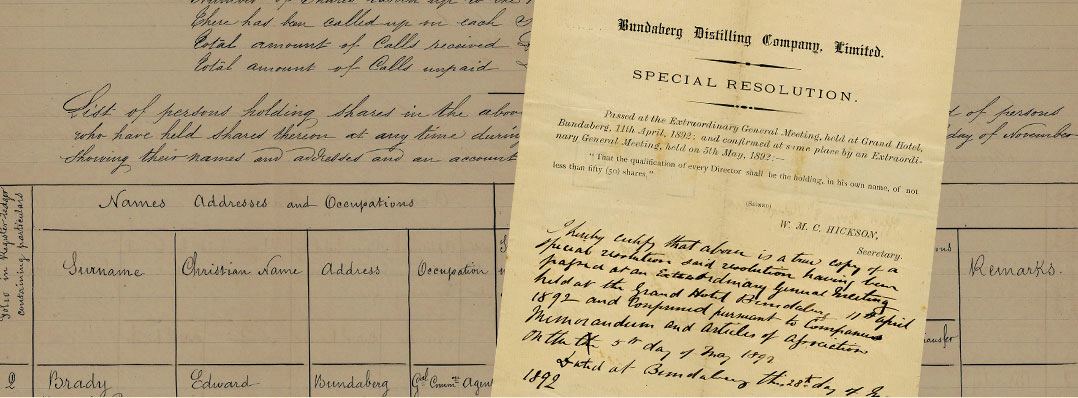 There has been called up on each
Total amount of Calls received
Total amount of Calls unpaid
List of persons holding shares in the abov
who have held shares thereon at any time during
Showing their names and addresses and an account
of persons
day of November
Folio in Register Ledger containing particulars
Names Addresses and Occupations
Surname
Christian Name
Address
Occupation
Remarks.
2
Brady
Edward
Bundaberg
Agen
Bundaberg Distilling Company, Limited.
SPECIAL RESOLUTION.
Passed at the Extraordinary General Meeting, held at Grand Hotel,
Bundaberg, 11th April, 1892; and confirmed at same place by an Extraordi-
nary General Meeting, held on 5th May, 1892:—
"That the qualification of every Director shall be the holding, in his own name, of not
less than fifty (50) shares."
(Signed)
W. M. C. HICKSON,
Secretary.
I hereby certify that above is a true copy of a
special resolution said resolution having been
passed at an Extraordinary General Meeting
held at the Grand Hotel Bundaberg 11th April
1892 and confirmed pursuant to Companies
Memorandum and Articles of Association
on the 5th day of May 1892
Dated at Bundaberg this 28th day of
1892